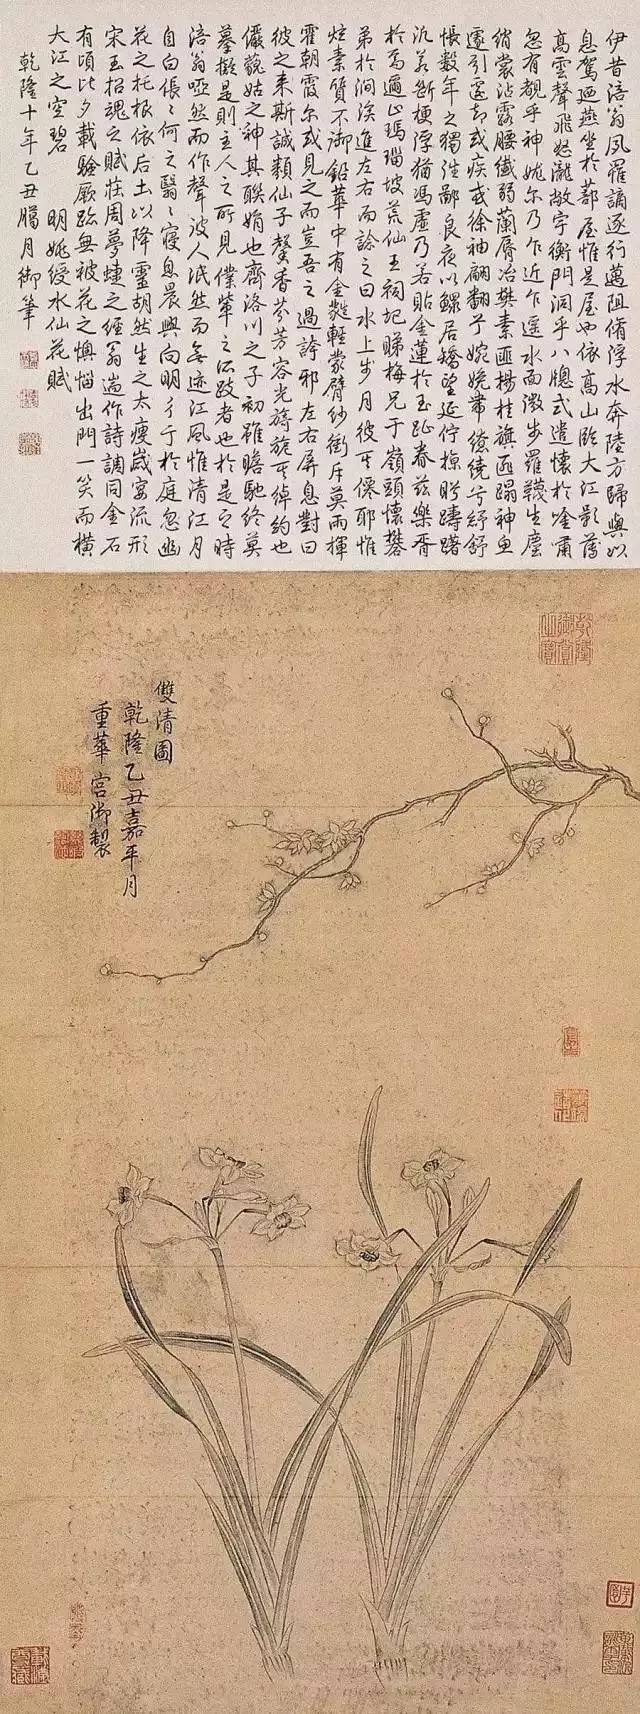 伊昔涪翁夙罹謫逐行邁阻脩浮水奔陸方歸與以
息駕廼燕坐於蔀屋惟是屋也依高山臨大江影落
高雲聲飛怒瀧敞宇衡門洞乎八牕式遣懷於唫嘯
忽有覩乎神姚尔乃乍近乍遥水面微步羅韈生塵
綃裳沾露腰纖弱蘭脣冶樊素匪楊桂旗函蹋神魚
遽引還却或疾或徐袖翩翻兮婉娩帶繚繞兮紓舒
悵數年之獨鄙良夜以鰥居矯望延佇掠眄躊躇
氿若斷梗浮猶馮虛乃若貼金蓮於玉趾眷茲樂胥
於焉遍止瑪瑙坡荒仙王祠圮睇梅兄于嶺頭懷礬
弟於澗溪進左右而諗之曰水上步月彼其僊耶惟
炫素質不御鉛華中有金蕤輕蒙臂紗衝斥莫雨揮
霍朝霞尔或見之而豈吾之過誇邪左右屏息對曰
彼之来斯誠類仙子馨香芬芳容光旖旎其綽約也
儼藐姑之神其聯娟也齊洛川之子初雖瞻馳終莫
摹擬是則主人之所見僕輩之所跂者也於是之時
涪翁啞然而作聲波人泯然而無迹江風惟清江月
自白倀倀何之翳翳寢息晨興向明亍亍於庭忽幽
花之托根依后土以降靈胡然生之太瘦歲宴流形
宋玉招魂之賦莊周夢蝶之經翁遄作詩調同金石
有頃比夕載驗厥跡無被花之懊惱出門一笑而橫
大江之空碧 明姚綬水仙花賦
乾隆十年乙丑臘月御筆
乾隆御賞之寶
雙清圖
乾隆乙丑嘉平月
重華宮御製